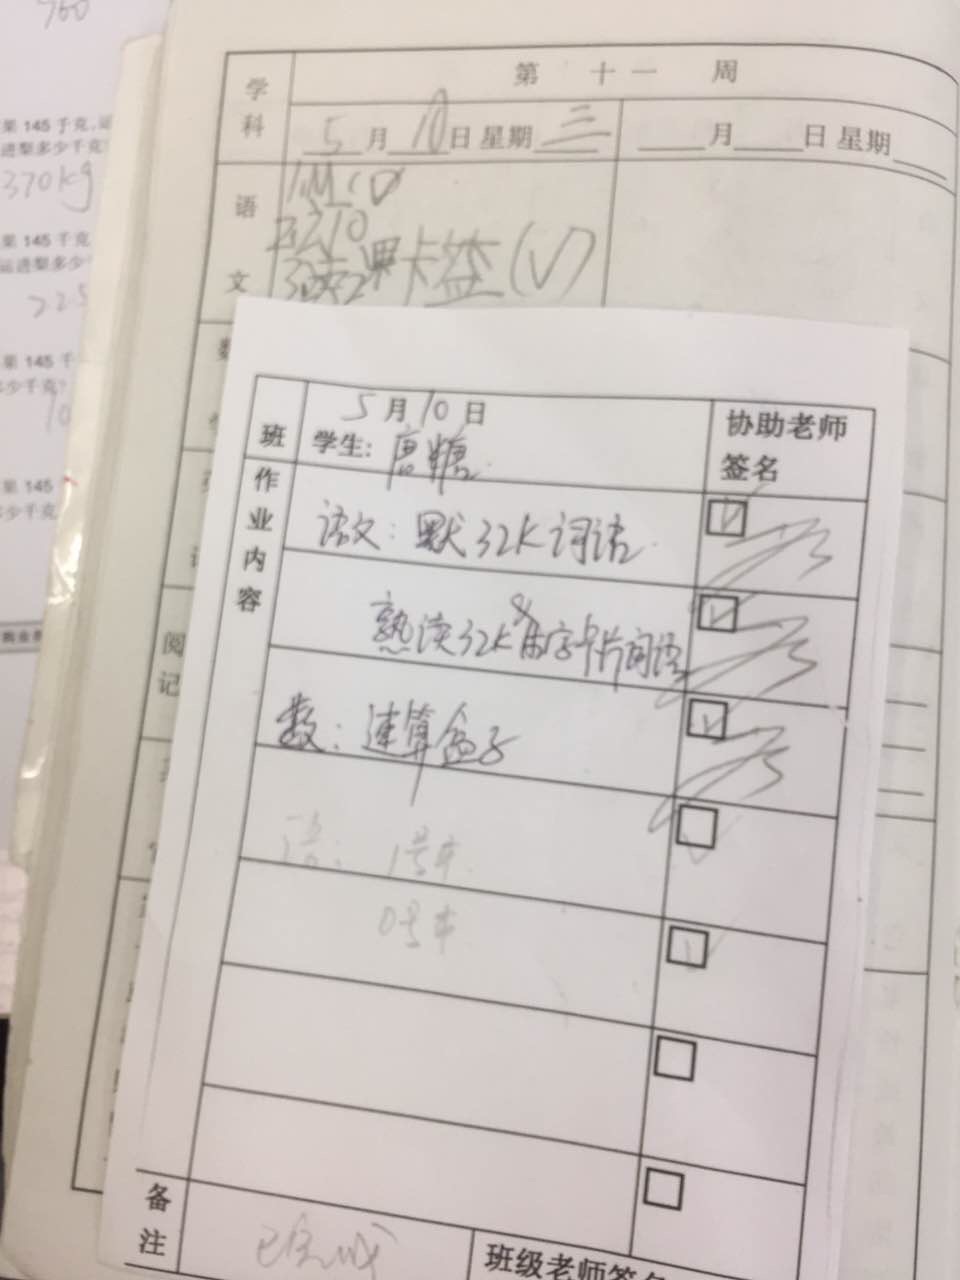 760
果 145 千克,运
进梨多少千克?
370kg
果 145 千克
运进梨多少
225
果 145 千
少千克?
10
果 145
少千克
学科
第 十一 周
5月10日 星期三
月 日 星期
语文
卡签(√)
数
阅
记
班
5月10日
学生: 唐糖
协助老师
签名
作业内容
语文: 默32K词语
熟读32K 字卡片词语
数: 速算盒子
语: 1号本
0号本
备注
已完成
班级老师签名